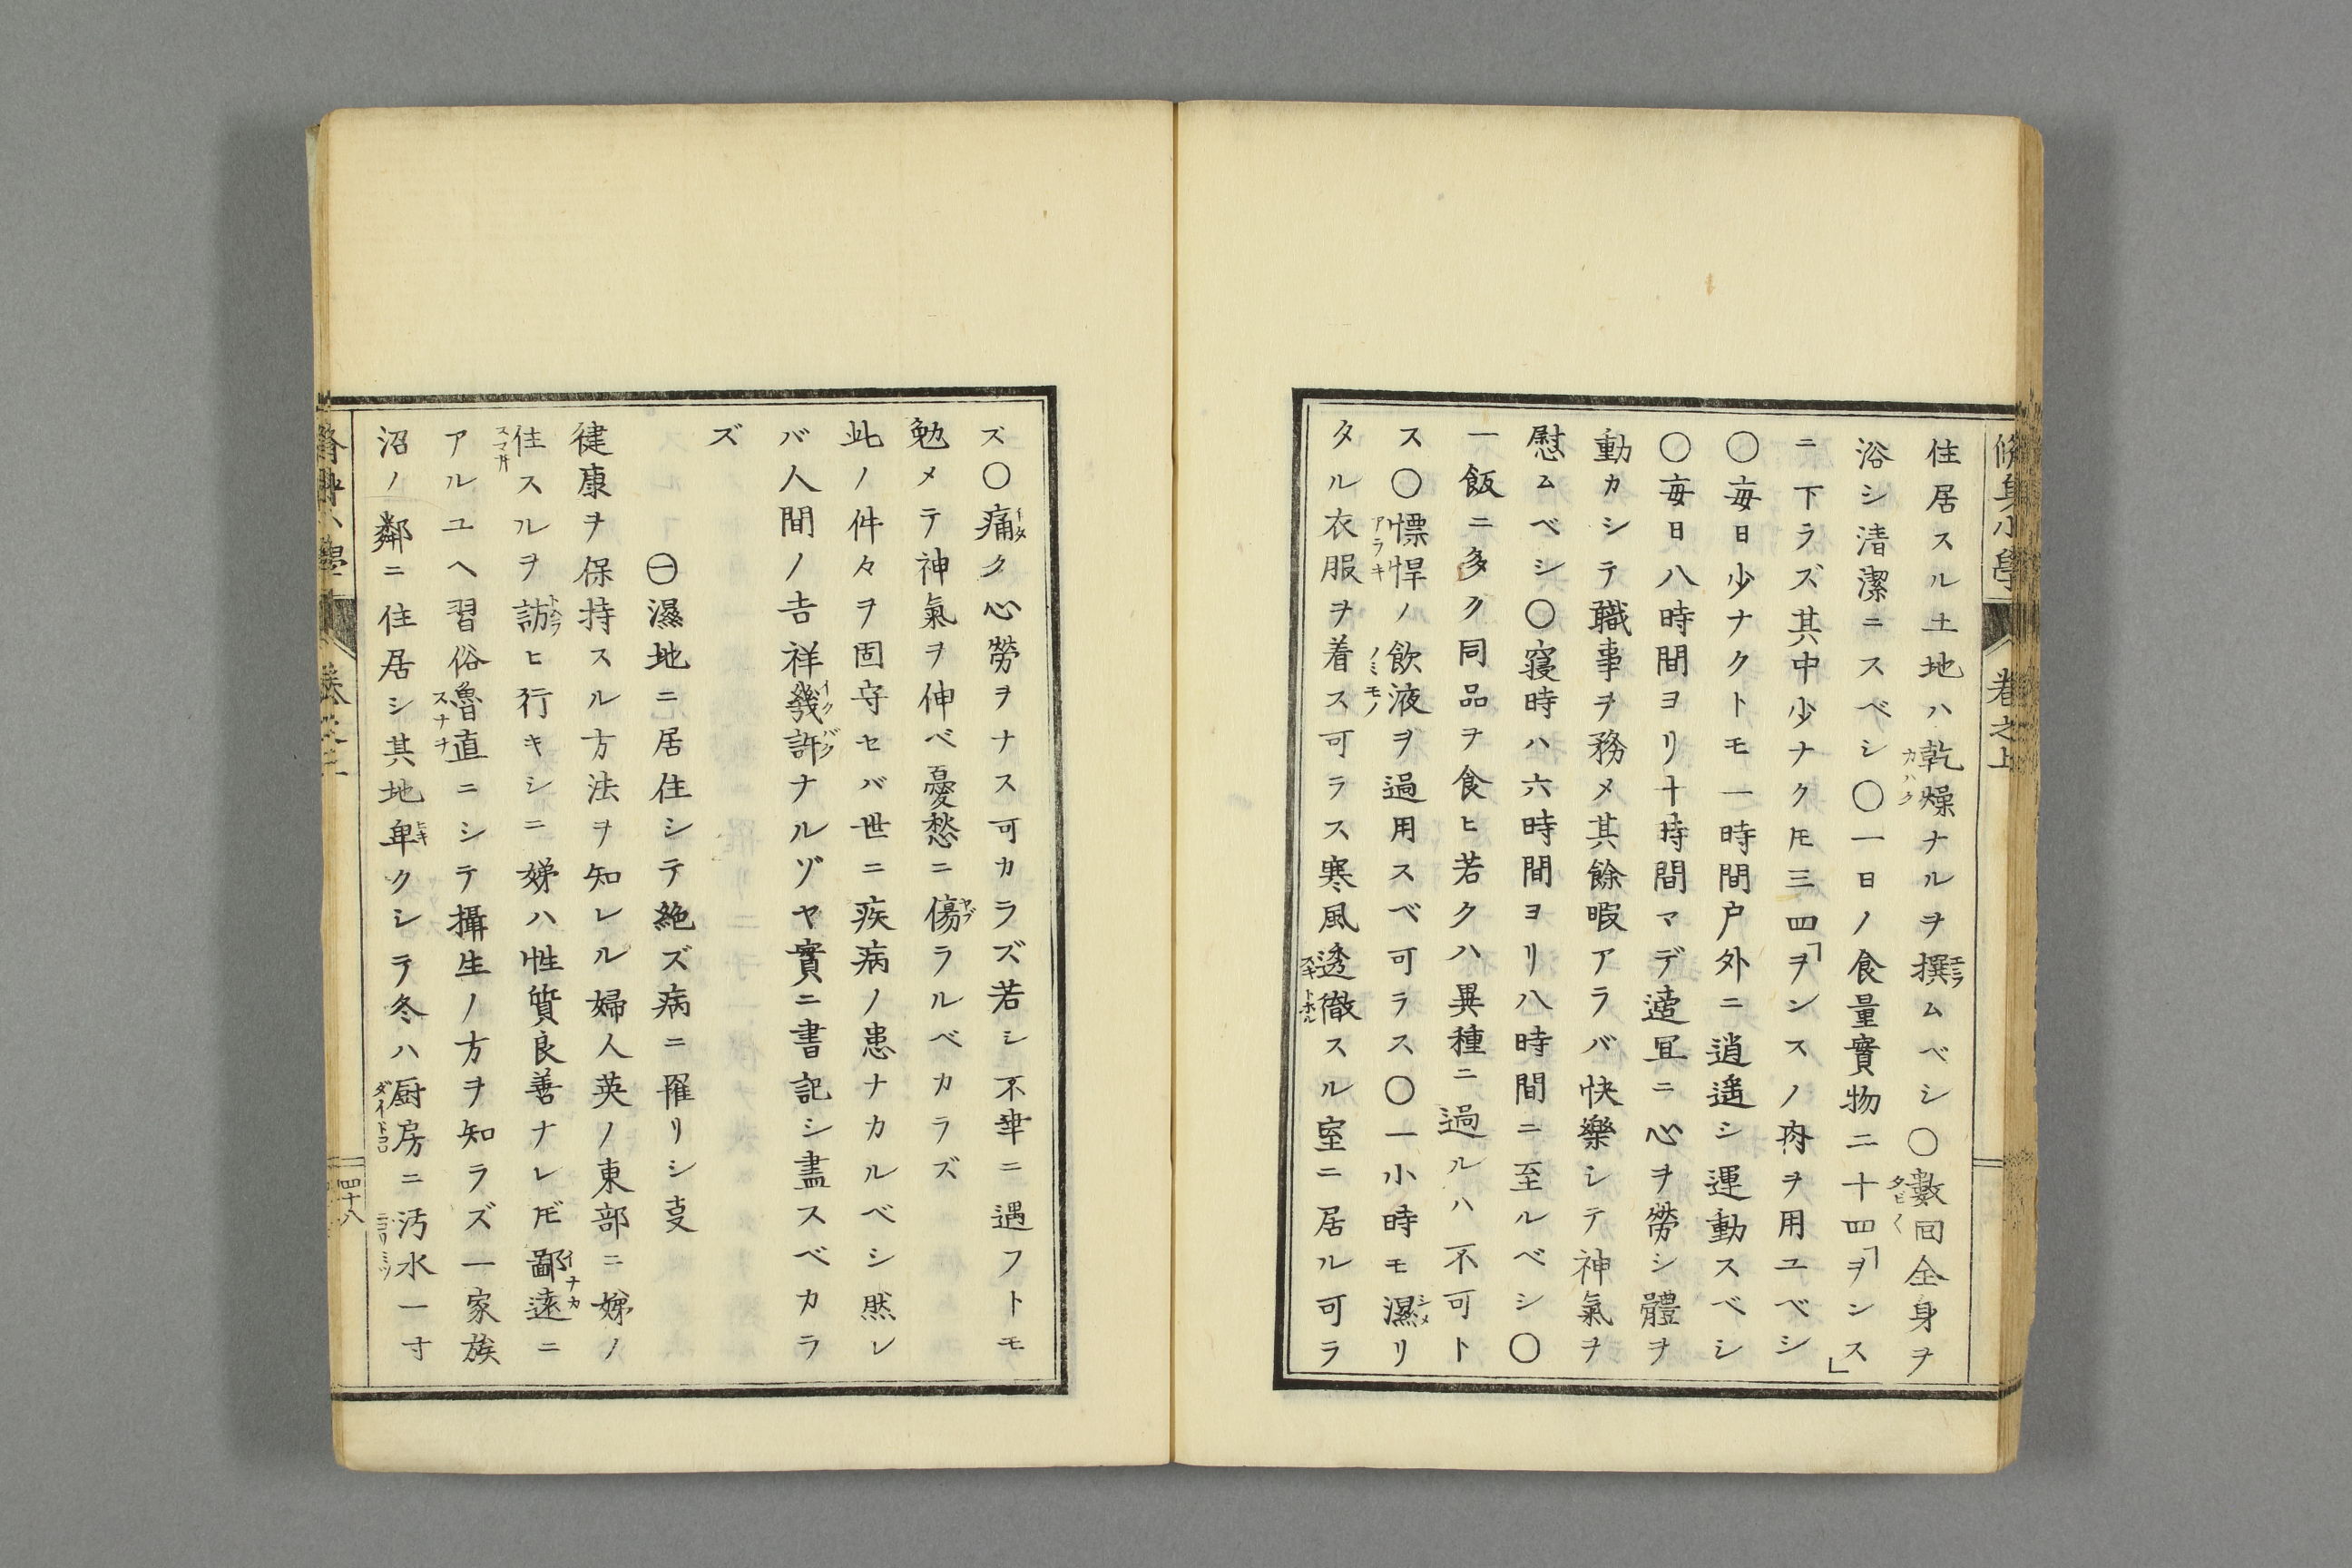 脩身小學 卷之上
住居スル土地ハ乾燥ナルヲ撰ムベシ〇數回全身ヲ
浴シ清潔ニスベシ〇一日ノ食量實物二十四「ヲンス」
ニ下ラズ其中少ナクトモ三四「ヲンスノ肉ヲ用ユベシ
〇毎日少ナクトモ一時間戸外ニ逍遙シ運動スベシ
〇毎日八時間ヨリ十時間マデ適冝ニ心ヲ勞シ體ヲ
動カシテ職事ヲ務メ其餘暇アラバ快樂シテ神氣ヲ
慰ムベシ〇寢時ハ六時間ヨリ八時間ニ至ルベシ〇
一飯ニ多ク同品ヲ食ヒ若クハ異種ニ過ルハ不可ト
ス〇慓悍ノ飲液ヲ過用スベ可ラス〇一小時モ濕リ
タル衣服ヲ着ス可ラス寒風透徹スル室ニ居ル可ラ
ズ〇痛ク心勞ヲナス可カラズ若シ不幸ニ遇フトモ
勉メテ神氣ヲ伸ベ憂愁ニ傷ラルベカラズ
此ノ件々ヲ固守セバ世ニ疾病ノ患ナカルベシ然レ
バ人間ノ吉祥幾許ナルゾヤ實ニ書記シ盡スベカラ
ズ
㊀濕地ニ居住シテ絶ズ病ニ罹リシ叓
健康ヲ保持スル方法ヲ知レル婦人英ノ東部ニ娣ノ
住スルヲ訪ヒ行キシニ娣ハ性質良善ナレ𪜈鄙遠ニ
アルユヘ習俗魯直ニシテ攝生ノ方ヲ知ラズ一家族
沼ノ鄰ニ住居シ其地卑クシテ冬ハ厨房ニ汚水一寸
四十八